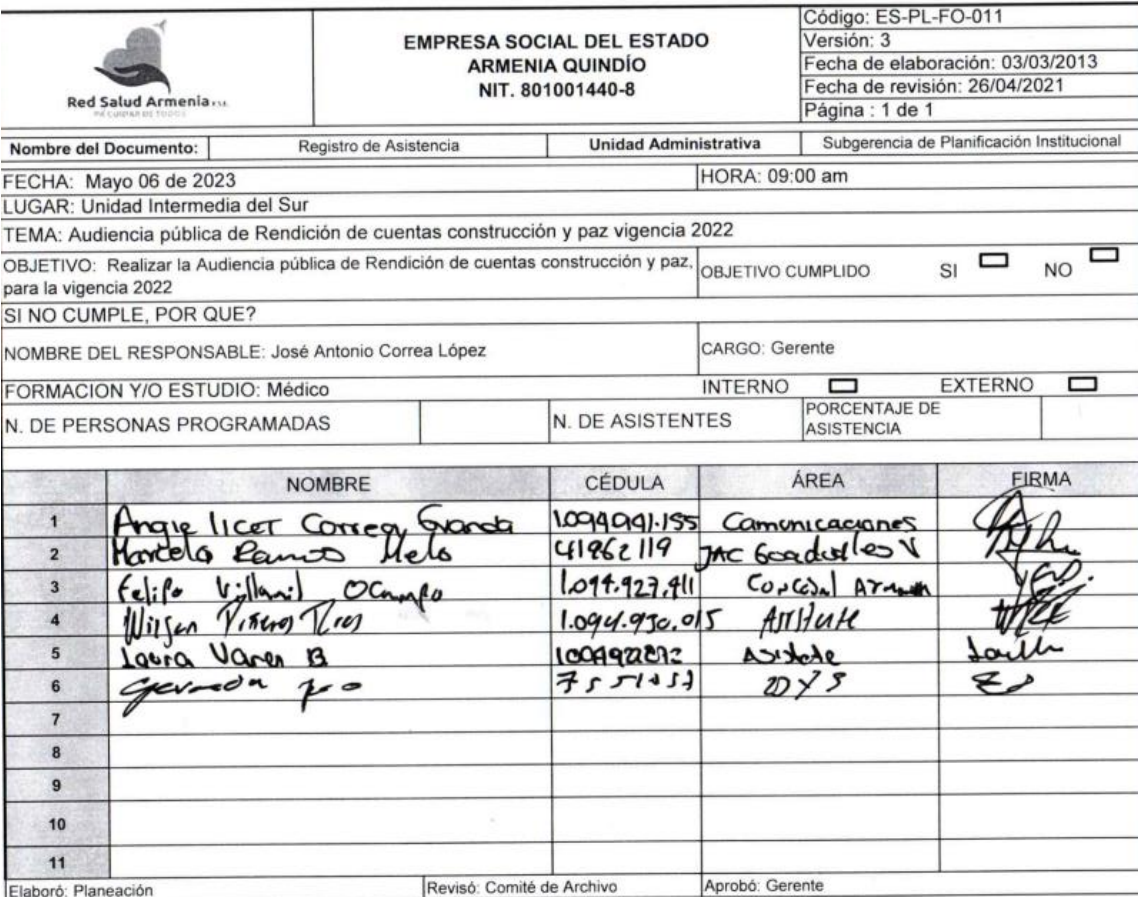 Red Salud Armenia E.S.E.
PA CUIDAR DE TODOS
EMPRESA SOCIAL DEL ESTADO
ARMENIA QUINDÍO
NIT. 801001440-8
Código: ES-PL-FO-011
Versión: 3
Fecha de elaboración: 03/03/2013
Fecha de revisión: 26/04/2021
Página : 1 de 1
Nombre del Documento: Registro de Asistencia Unidad Administrativa Subgerencia de Planificación Institucional
FECHA: Mayo 06 de 2023 HORA: 09:00 am
LUGAR: Unidad Intermedia del Sur
TEMA: Audiencia pública de Rendición de cuentas construcción y paz vigencia 2022
OBJETIVO: Realizar la Audiencia pública de Rendición de cuentas construcción y paz,
para la vigencia 2022
OBJETIVO CUMPLIDO SI NO
SI NO CUMPLE, POR QUE?
NOMBRE DEL RESPONSABLE: José Antonio Correa López CARGO: Gerente
FORMACION Y/O ESTUDIO: Médico INTERNO EXTERNO
N. DE PERSONAS PROGRAMADAS N. DE ASISTENTES PORCENTAJE DE
ASISTENCIA
NOMBRE CÉDULA ÁREA FIRMA
1 Angie licet Correa Granda 1.094941.155 Comunicaciones
2 Marcela Ramos Melo 41962119 JAC
3 Felipe Villamil Ocampo 1.094.927.911 Concejal Armenia
4 Wilson 1.094.930.015 Asistente
5 Laura Asistente
6
7
8
9
10
11
Elaboró: Planeación Revisó: Comité de Archivo Aprobó: Gerente